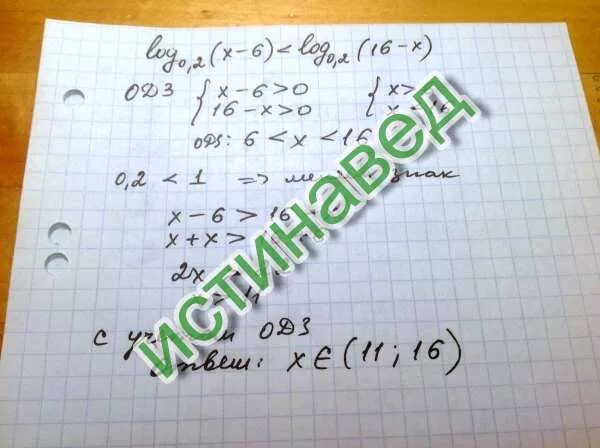 log₀,₂(x-6) < log₀,₂(16-x)
ОДЗ { x-6>0 { x>
16-x>0
ОДЗ: 6 < x < 16
0,2 < 1 => знак
x-6 > 16
x+x >
2x
с ОДЗ
Ответ: x∈(11; 16)
ИСТИНАВЕД